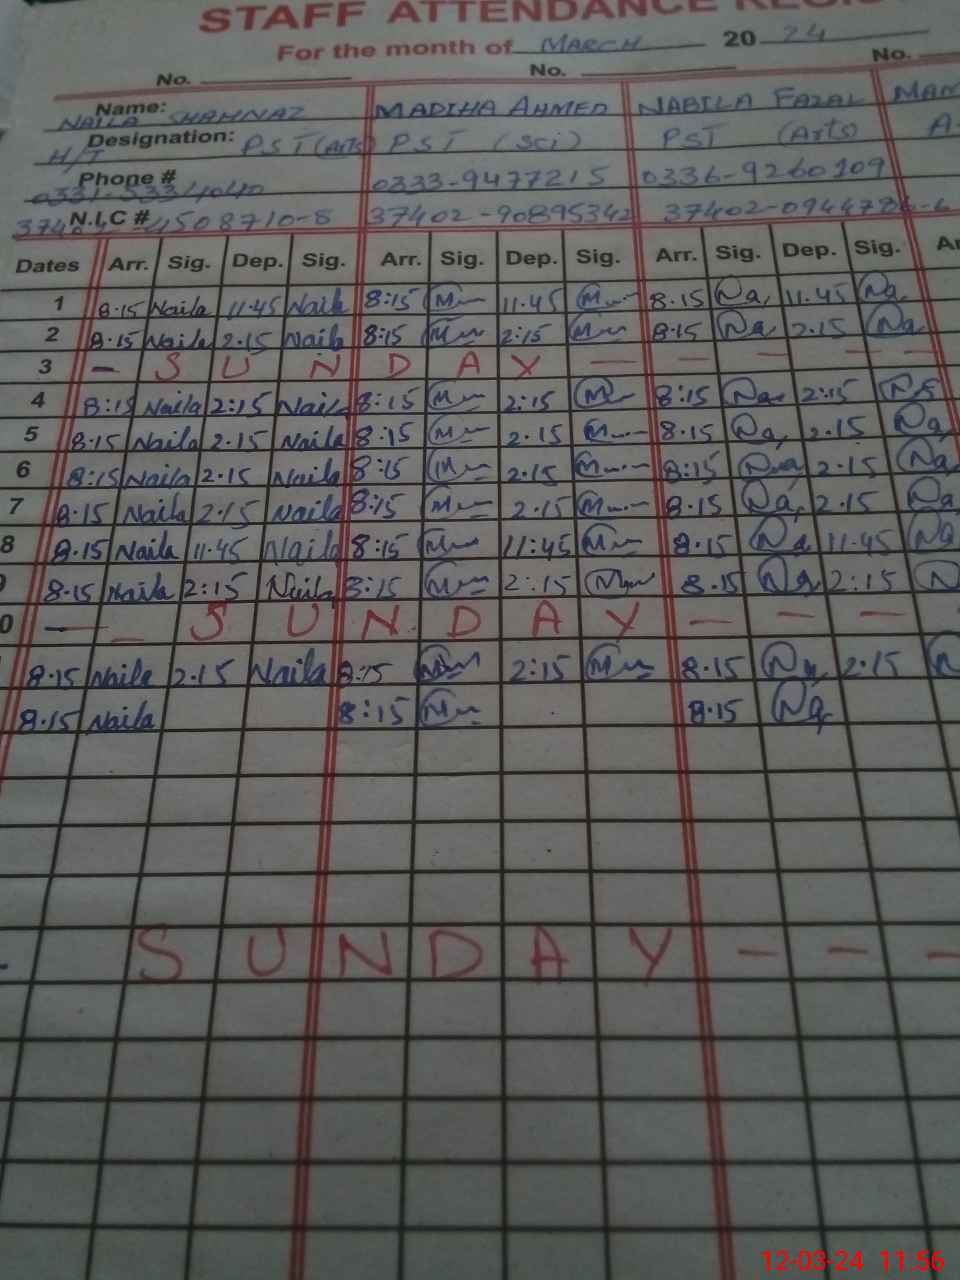 STAFF ATTENDANCE REGIS
For the month of MARCH 20 24
No. No. No.
Name: NAILA SHAHNAZ MADIHA AHMED NABILA FAZAL MAM
Designation: H/T P.S.T (Arts) PST (Sci) PST (Arts) A
Phone # 0333-9477215 0336-9260109
N.I.C # 4508710-8 37402-9089534 37402-0944786-6
Dates Arr. Sig. Dep. Sig. Arr. Sig. Dep. Sig. Arr. Sig. Dep. Sig. Ar
1 8.15 Naila 11.45 Naila 8:15 M 11.45 M 8.15 Na 11.45 Na
2 8.15 Naila 2.15 Naila 8:15 M 2:15 M 8.15 Na 2.15 Na
3 - S U N D A Y - - - - -
4 8:15 Naila 2:15 Naila 8:15 M 2:15 M 8:15 Na 2:15 Na
5 8.15 Naila 2.15 Naila 8:15 M 2.15 M 8.15 Na 2.15 Na
6 8:15 Naila 2.15 Naila 8:15 M 2.15 M 8:15 Na 2.15 Na
7 8.15 Naila 2.15 Naila 8:15 M 2.15 M 8.15 Na 2.15 Na
8 8.15 Naila 11.45 Naila 8:15 M 11:45 M 8.15 Na 11.45 Na
8.15 Naila 2:15 Naila 8:15 M 2:15 M 8.15 Na 2:15 N
0 - - S U N D A Y - - -
8.15 Naila 2.15 Naila 8:15 M 2:15 M 8.15 Na 2.15 N
8.15 Naila 8:15 M 8.15 Na
- S U N D A Y - - -
12-03-24 11:56